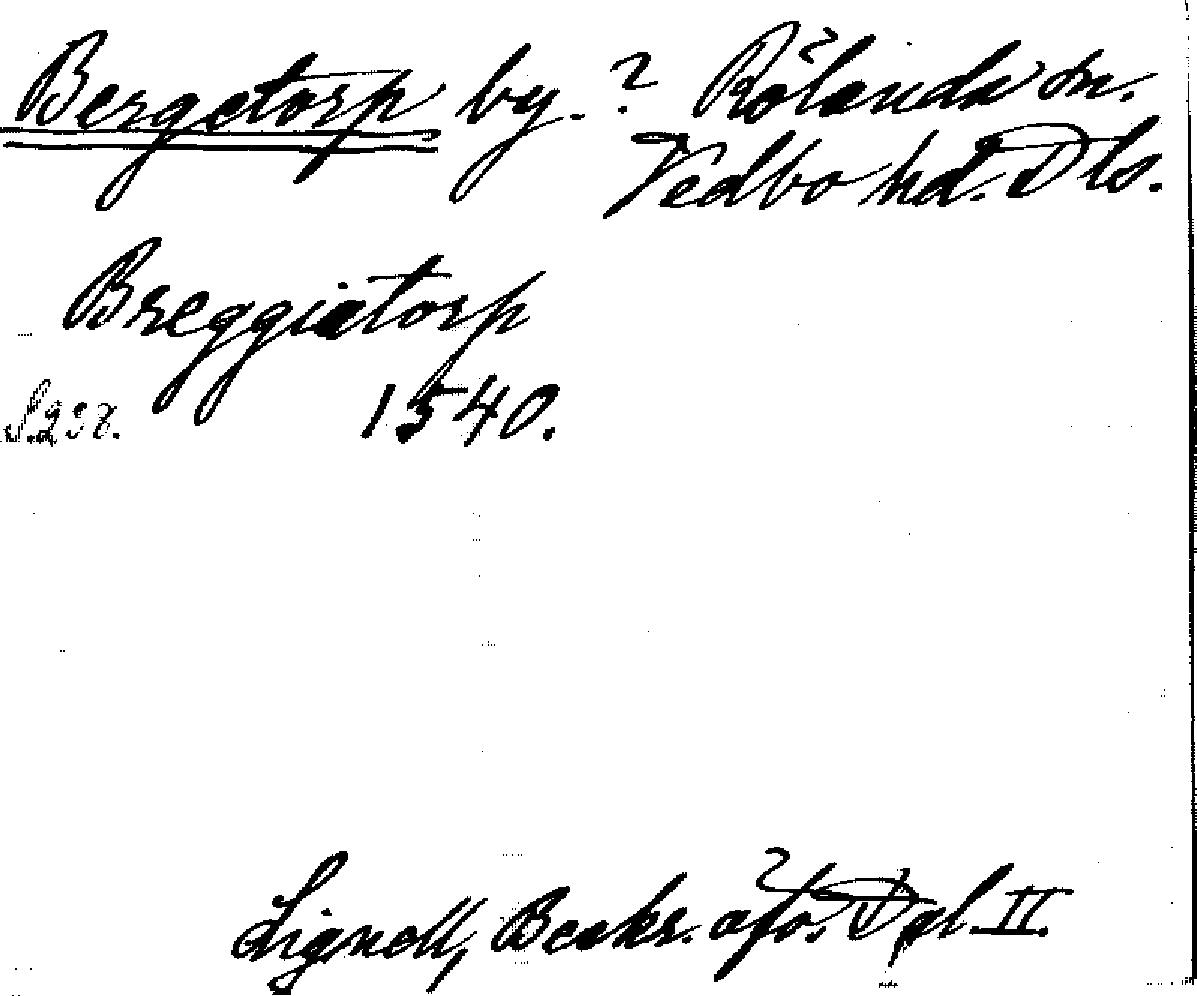 Bergetorp by. ? Rölanda sn.
Vedbo hd. Dls.
Breggiatorp
S. 238. 1540.
Lignell, Beskr. öfv. Dal. II.